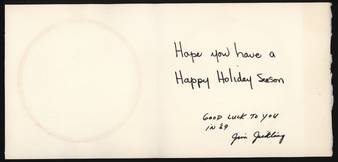 Hope you have a
Happy Holiday Season
GOOD LUCK TO YOU
IN 89
Jim